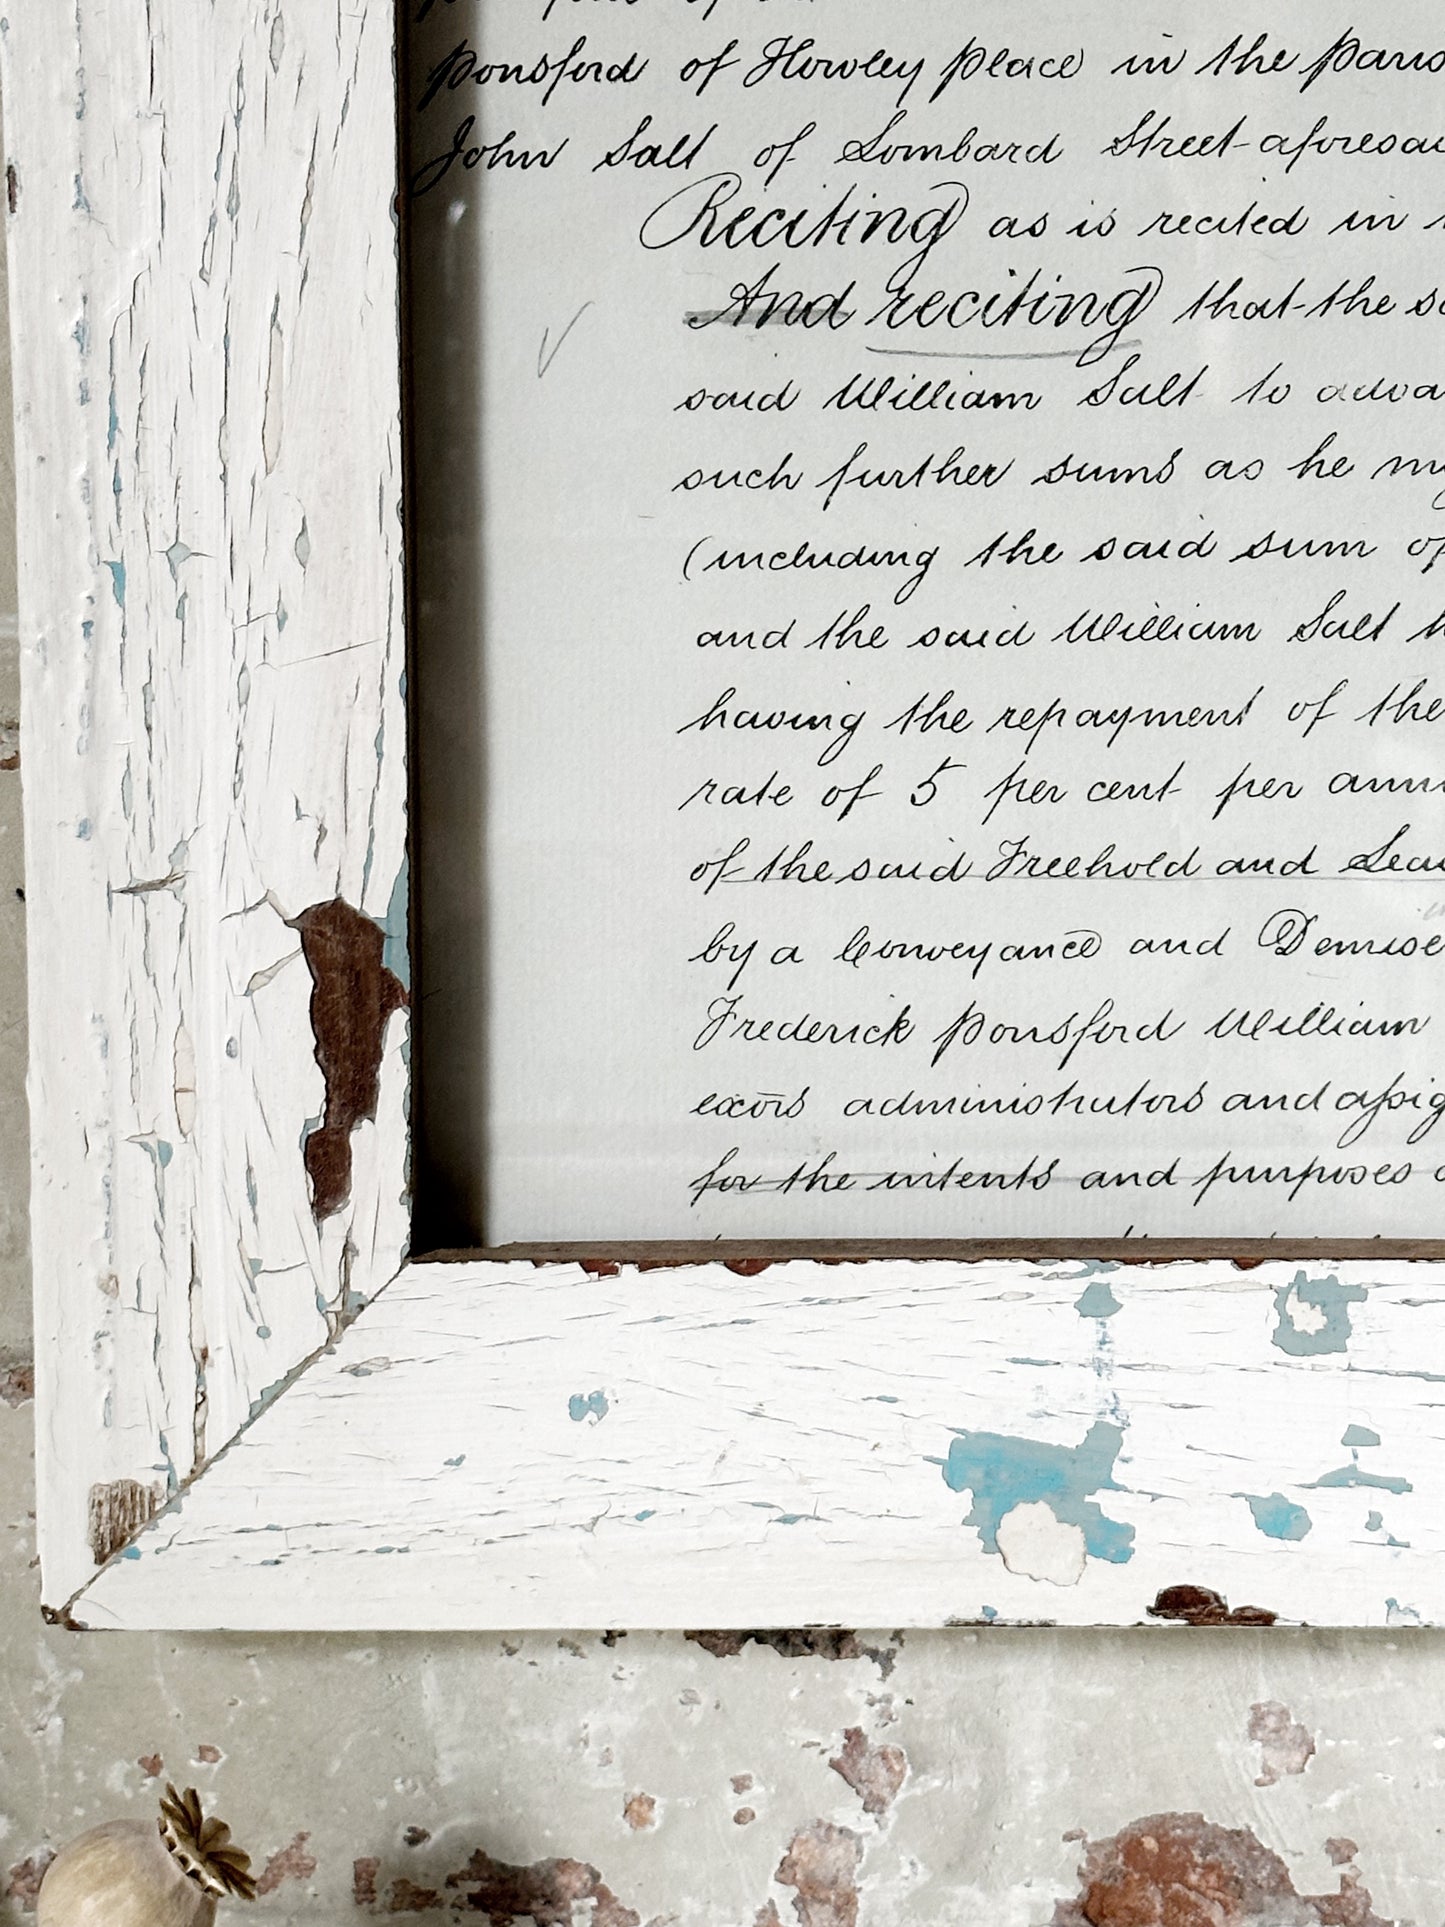 Ponsford of Howley Place in the Paris
John Salt of Lombard Street aforesai
Reciting as is recited in
And reciting that the sa
said William Salt to adva
such further sums as he
(including the said sum of
and the said William Salt
having the repayment of the
rate of 5 per cent per annu
of the said Freehold and Leas
by a Conveyance and Demise
Frederick Ponsford William
exōrs administrators and assig
for the intents and purposes